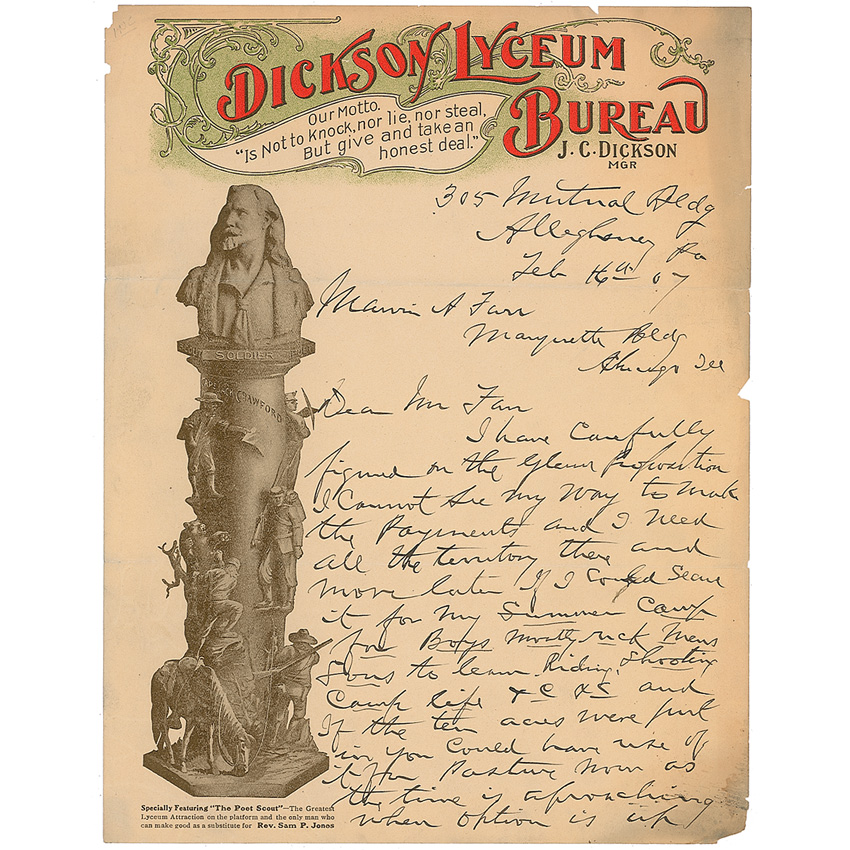 DICKSON LYCEUM
BUREAU
J. C. DICKSON
MGR
Our Motto.
"Is Not to Knock, nor lie, nor steal,
But give and take an
honest deal."
305 Mutual Bldg
Allegheny Pa
Feb 16th 07
Marvin A Farr
Marquette Bldg
Chicago Ill
Dear Mr Farr
I have Carefully
figured on the Proposition
I Cannot See my Way to Make
the Payments and I Need
all the territory there and
more later If I Could Secure
it for my Summer Camp
for Boys mostly rich mens
Sons to learn Riding, Shooting
Camp life &C &C and
If the ten acres were put
in you Could have use of
it for Pasture Now as
the time is aproaching
when option is up
SOLDIER
CRAWFORD
Specially Featuring "The Poet Scout"—The Greatest
Lyceum Attraction on the platform and the only man who
can make good as a substitute for Rev. Sam P. Jones